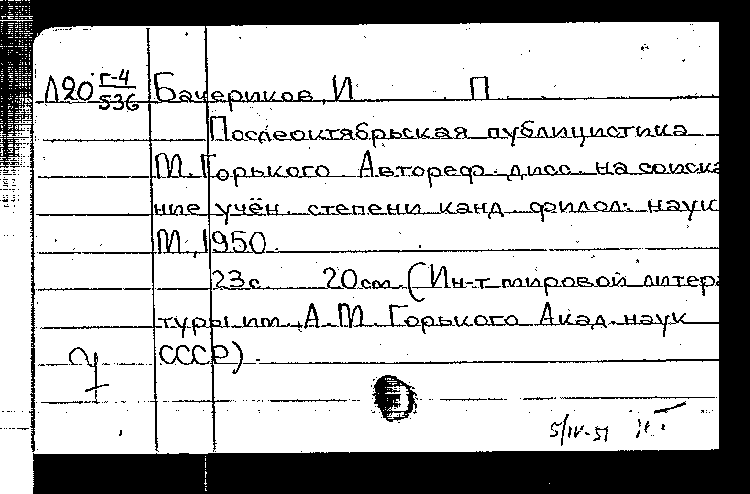 Л20 Г-4/536 Бачериков, И П
Послеоктябрьская публицистика
М. Горького Автореф. дисс. на соиска
ние учён. степени канд. филол. наук
М., 1950.
23с. 20см. (Ин-т мировой литера
туры им. А.М. Горького Акад. наук
СССР).
5/IV-51